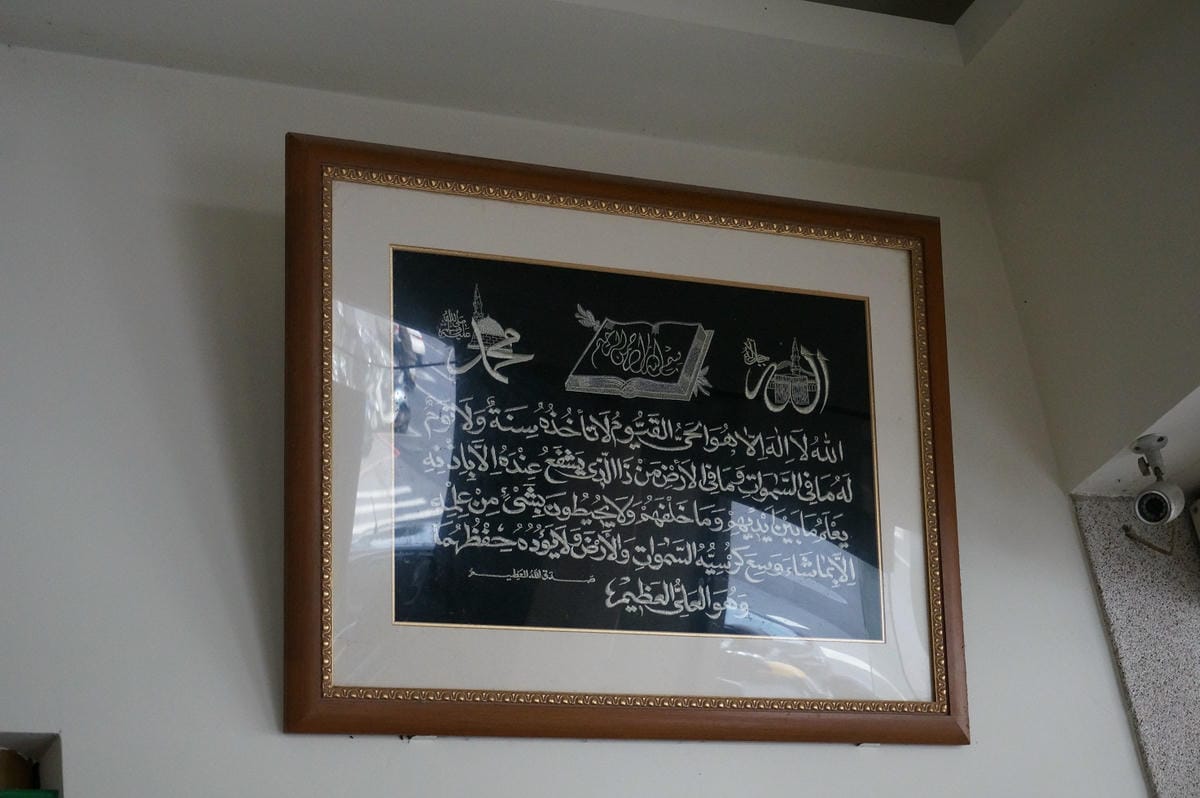 الله جل جلاله
بسم الله الرحمن الرحيم
محمد صلى الله عليه وسلم
اللهُ لَا اِلٰهَ اِلَّا هُوَ الْحَىُّ الْقَيُّومُ لَا تَأْخُذُهُ سِنَةٌ وَلَا نَوْمٌ
لَهُ مَا فِى السَّمٰوَاتِ وَمَا فِى الْاَرْضِ مَنْ ذَا الَّذِى يَشْفَعُ عِنْدَهُ اِلَّا بِاِذْنِهِ
يَعْلَمُ مَا بَيْنَ اَيْدِيهِمْ وَمَا خَلْفَهُمْ وَلَا يُحِيطُونَ بِشَىْءٍ مِنْ عِلْمِهِ
اِلَّا بِمَا شَاءَ وَسِعَ كُرْسِيُّهُ السَّمٰوَاتِ وَالْاَرْضَ وَلَا يَؤُدُهُ حِفْظُهُمَا
وَهُوَ الْعَلِىُّ الْعَظِيمُ
صدق الله العظيم